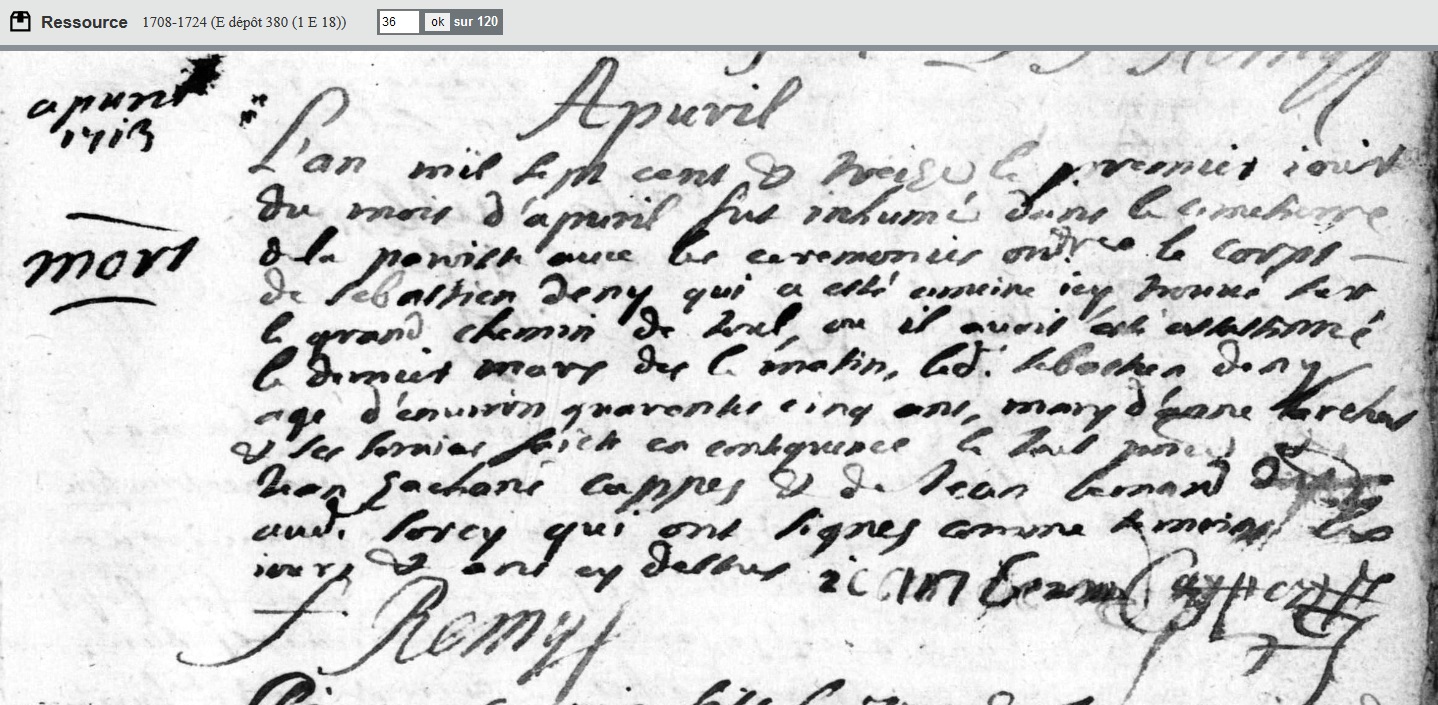 Ressource 1708-1724 (E dépôt 380 (1 E 18)) 36 ok sur 120
Apuril
apuril
1713
L'an mil sept cent & treize le premier iour
du mois d'apuril fut inhumé dans le cimetierre
de la paroisse auec les ceremonies ordres le corps
mort
de sebastien deny qui a esté trouué sur
le grand chemin de toul, ou il auoit esté
le dernier mars des le matin, led. sebastien deny
agé d'enuiron quarente cinq ans, mary d'anne
& les en consequence le tout
Jean Zacharie cappes & de Jean bernard
aud. sorcy qui ont signes comme temoins les
iours & ans cy dessus
F Remy